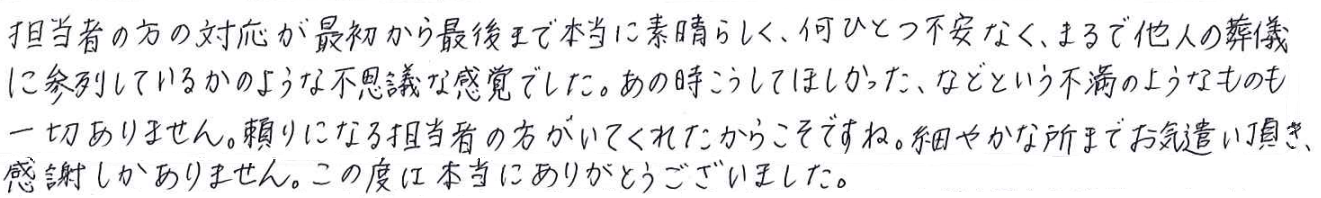 担当者の方の対応が最初から最後まで本当に素晴らしく、何ひとつ不安なく、まるで他人の葬儀
に参列しているかのような不思議な感覚でした。あの時こうしてほしかった、などという不満のようなものも
一切ありません。頼りになる担当者の方がいてくれたからこそですね。細やかな所までお気遣い頂き、
感謝しかありません。この度は本当にありがとうございました。